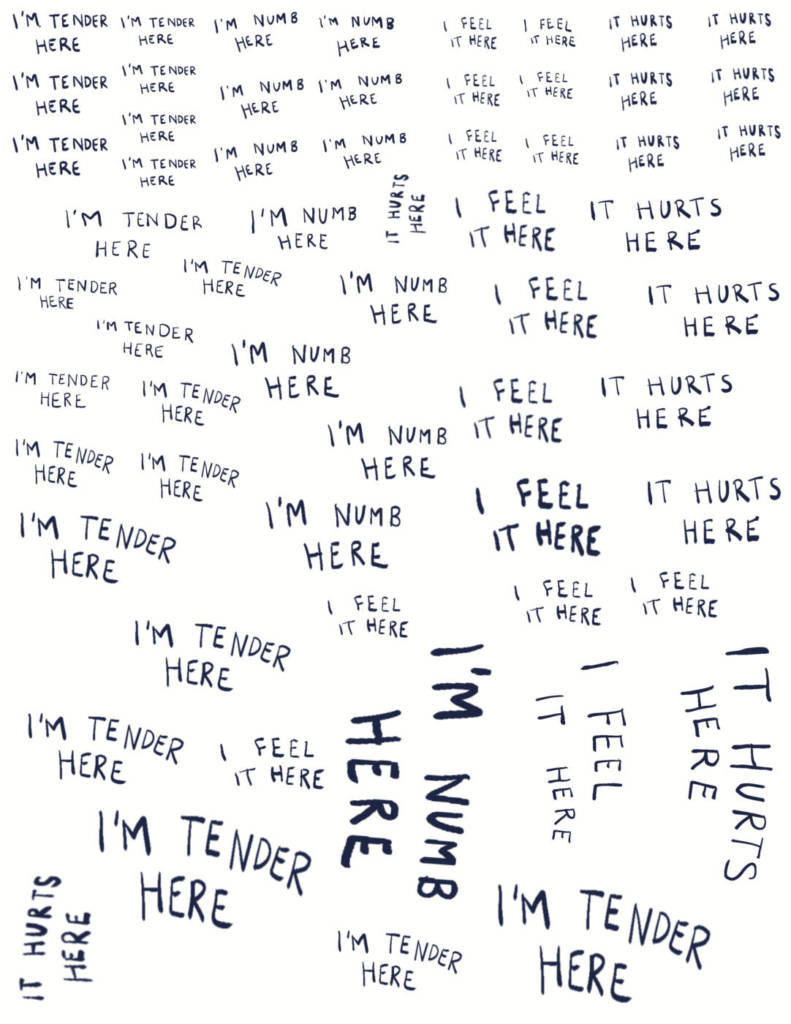 I'M TENDER
HERE
I'M TENDER
HERE
I'M NUMB
HERE
I'M NUMB
HERE
I FEEL
IT HERE
I FEEL
IT HERE
IT HURTS
HERE
IT HURTS
HERE
I'M TENDER
HERE
I'M TENDER
HERE
I'M NUMB
HERE
I'M NUMB
HERE
I FEEL
IT HERE
I FEEL
IT HERE
IT HURTS
HERE
IT HURTS
HERE
I'M TENDER
HERE
I'M TENDER
HERE
I'M TENDER
HERE
I'M NUMB
HERE
I'M NUMB
HERE
I FEEL
IT HERE
I FEEL
IT HERE
IT HURTS
HERE
IT HURTS
HERE
I'M TENDER
HERE
I'M NUMB
HERE
IT HURTS
HERE
I FEEL
IT HERE
IT HURTS
HERE
I'M TENDER
HERE
I'M TENDER
HERE
I'M NUMB
HERE
I FEEL
IT HERE
IT HURTS
HERE
I'M TENDER
HERE
I'M NUMB
HERE
I'M TENDER
HERE
I'M TENDER
HERE
I FEEL
IT HERE
IT HURTS
HERE
I'M NUMB
HERE
I'M TENDER
HERE
I'M TENDER
HERE
I'M NUMB
HERE
I FEEL
IT HERE
IT HURTS
HERE
I'M TENDER
HERE
I FEEL
IT HERE
I FEEL
IT HERE
I FEEL
IT HERE
I'M TENDER
HERE
I'M NUMB
HERE
I FEEL
IT HERE
IT HURTS
HERE
I'M TENDER
HERE
I FEEL
IT HERE
I'M TENDER
HERE
IT HURTS
HERE
I'M TENDER
HERE
I'M TENDER
HERE